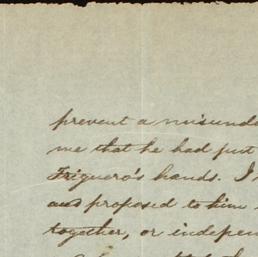 prevent a misunde
me that he had just
Friguero's hands. I
and proposed to him
together, or indepen